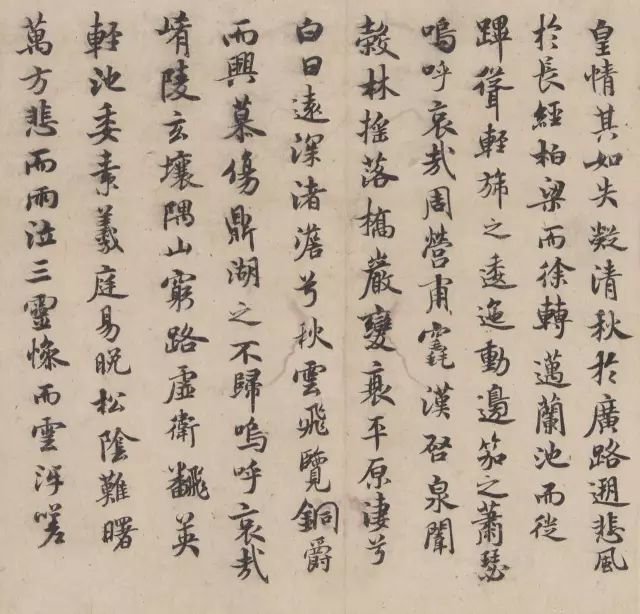 皇情其如失凝清秋於廣路遡悲風
於長經柏梁而徐轉邁蘭池而從
蹕聳輕旆之逶迤動邊笳之蕭瑟
嗚呼哀哉周營甫竁漢啓泉闈
穀林搖落橋巖變衰平原淒兮
白日遠深渚澹兮秋雲飛覽銅爵
而興慕傷鼎湖之不歸嗚呼哀哉
崤陵玄壤隅山窮路虛衛翻英
輕池委素羲庭易晚松陰難曙
萬方悲而雨泣三靈慘而雲冱嗟